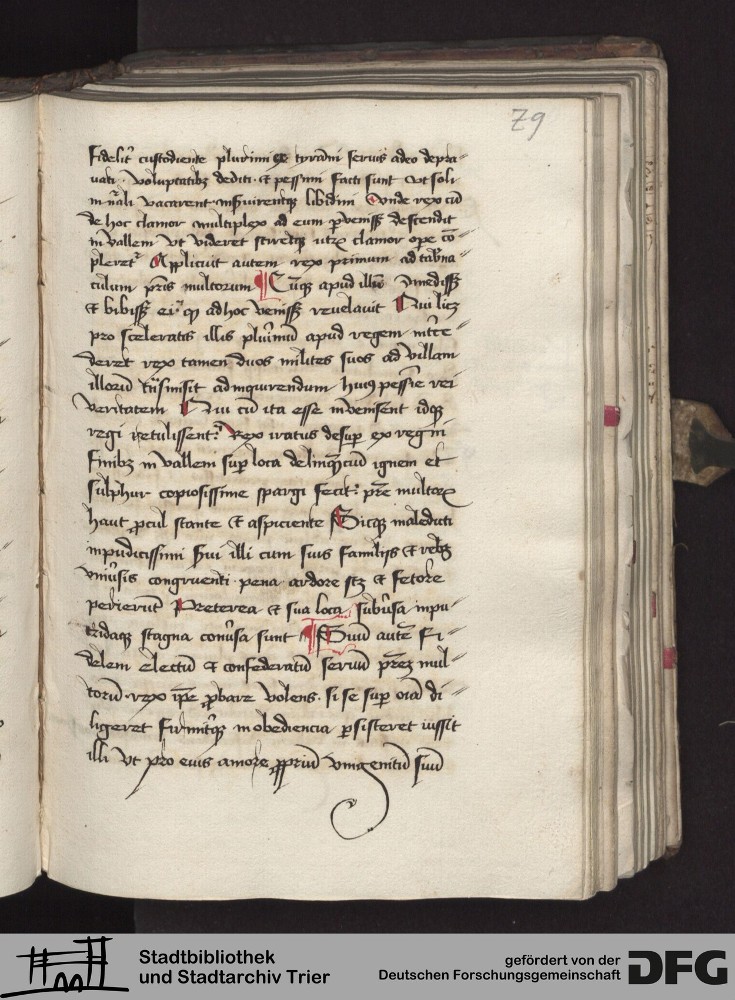 79
fidelit custodiente plurimi tyrāni serui adeo depra
uati voluptatibꝫ dediti et pessimi facti sunt vt soli
libidini vnde rex cū
de hoc clamor multiplex ad eum ꝑueniss descendit
in vallem vt videret clamor ope cō
pleret Applicuit autem rex primum ad tab̄na
culum pr̄is multorum Cūqꝫ apud illū
et bibiss ei ꝙ ad hoc veniss reuelauit Qui licꝫ
pro sceleratis illis plurimū apud regem int̄ce
deret rex tamen duos milites suos ad villam
illorū t̄nsmisit ad inquirendum huiꝰ pessīe rei
veritatem Qui cū ita esse inuenissent idqꝫ
regi retulissent Rex iratus desuꝑ ex regni
finibꝫ in vallem suꝑ loca delinq̄ncīū ignem et
sulphur copiosissime spargi fecit pr̄e multorꝝ
haut ꝓcul stante et aspiciente Sicqꝫ maledicti
impudicissimi s̄ui illi cum suis familijs et rebꝫ
vniūsis congruenti pena ardore scꝫ et fetore
perierūt Preterea et sua loca subūsa in pu
tridaqꝫ stagna conūsa sunt Suū autē fi
delem electū et confederatū seruū pr̄eꝫ mul
torū rex ip̄e ꝓbare volens si se suꝑ oīa di
ligeret firmit̄qꝫ in obediencia ꝑsisteret iussit
illi vt pro eius amore ꝓpriū vnigenitū suū
Stadtbibliothek
und Stadtarchiv Trier
gefördert von der
Deutschen Forschungsgemeinschaft
DFG